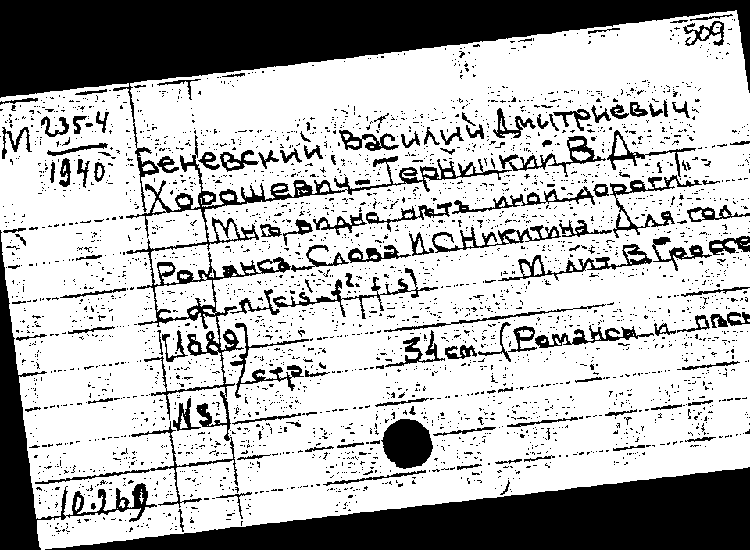 509
М 235-4
1940
Беневский, Василий Дмитриевич
Хорошевич-Терницкий, В. Д.
Мнѣ, видно, нѣтъ иной дороги...
Романсъ. Слова И.С.Никитина. Для гол.
с ф.-п. [cis¹-f²; fis]. М., лит. В. Гроссе
[1889]
7 стр. 34 см. (Романсы и
№ 3.)